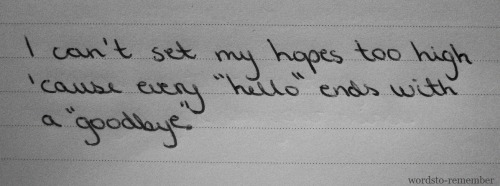 I can't set my hopes too high
'cause every "hello" ends with
a "goodbye".
wordsto-remember